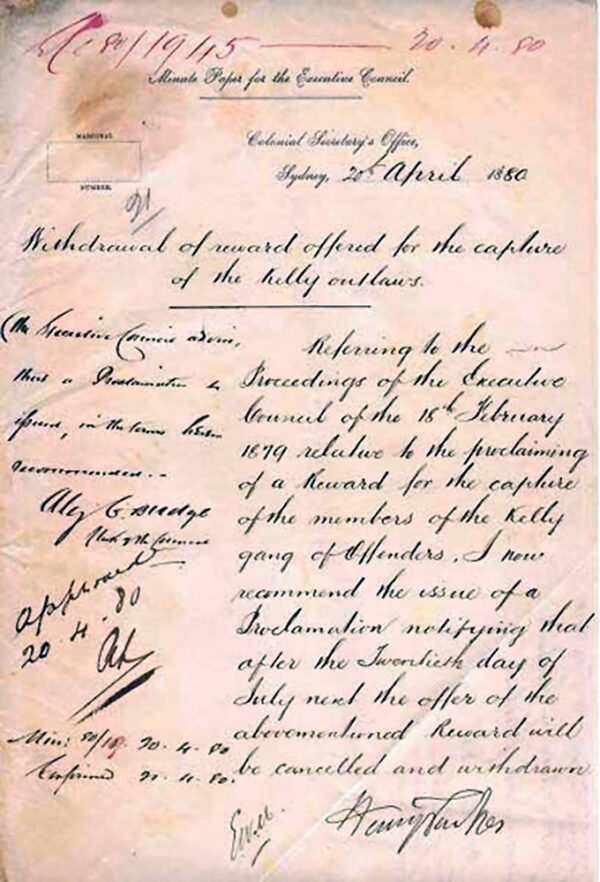 80/1945 — 20.4.80
Minute Paper for the Executive Council.
MARGINAL
NUMBER.
Colonial Secretary's Office,
Sydney, 20th April 1880
Withdrawal of reward offered for the capture
of the Kelly outlaws.
The Executive Council advise
that a Proclamation be
issued, in the terms herein
recommended.
Alex C. Budge
Clerk of the Council
Approved
20.4.80
Min: 80/19. 20.4.80
Confirmed 4.80.
Referring to the
Proceedings of the Executive
Council of the 18th February
1879 relative to the proclaiming
of a Reward for the capture
of the members of the Kelly
gang of Offenders, I now
recommend the issue of a
Proclamation notifying that
after the Twentieth day of
July next the offer of the
abovementioned Reward will
be cancelled and withdrawn
Henry Parkes